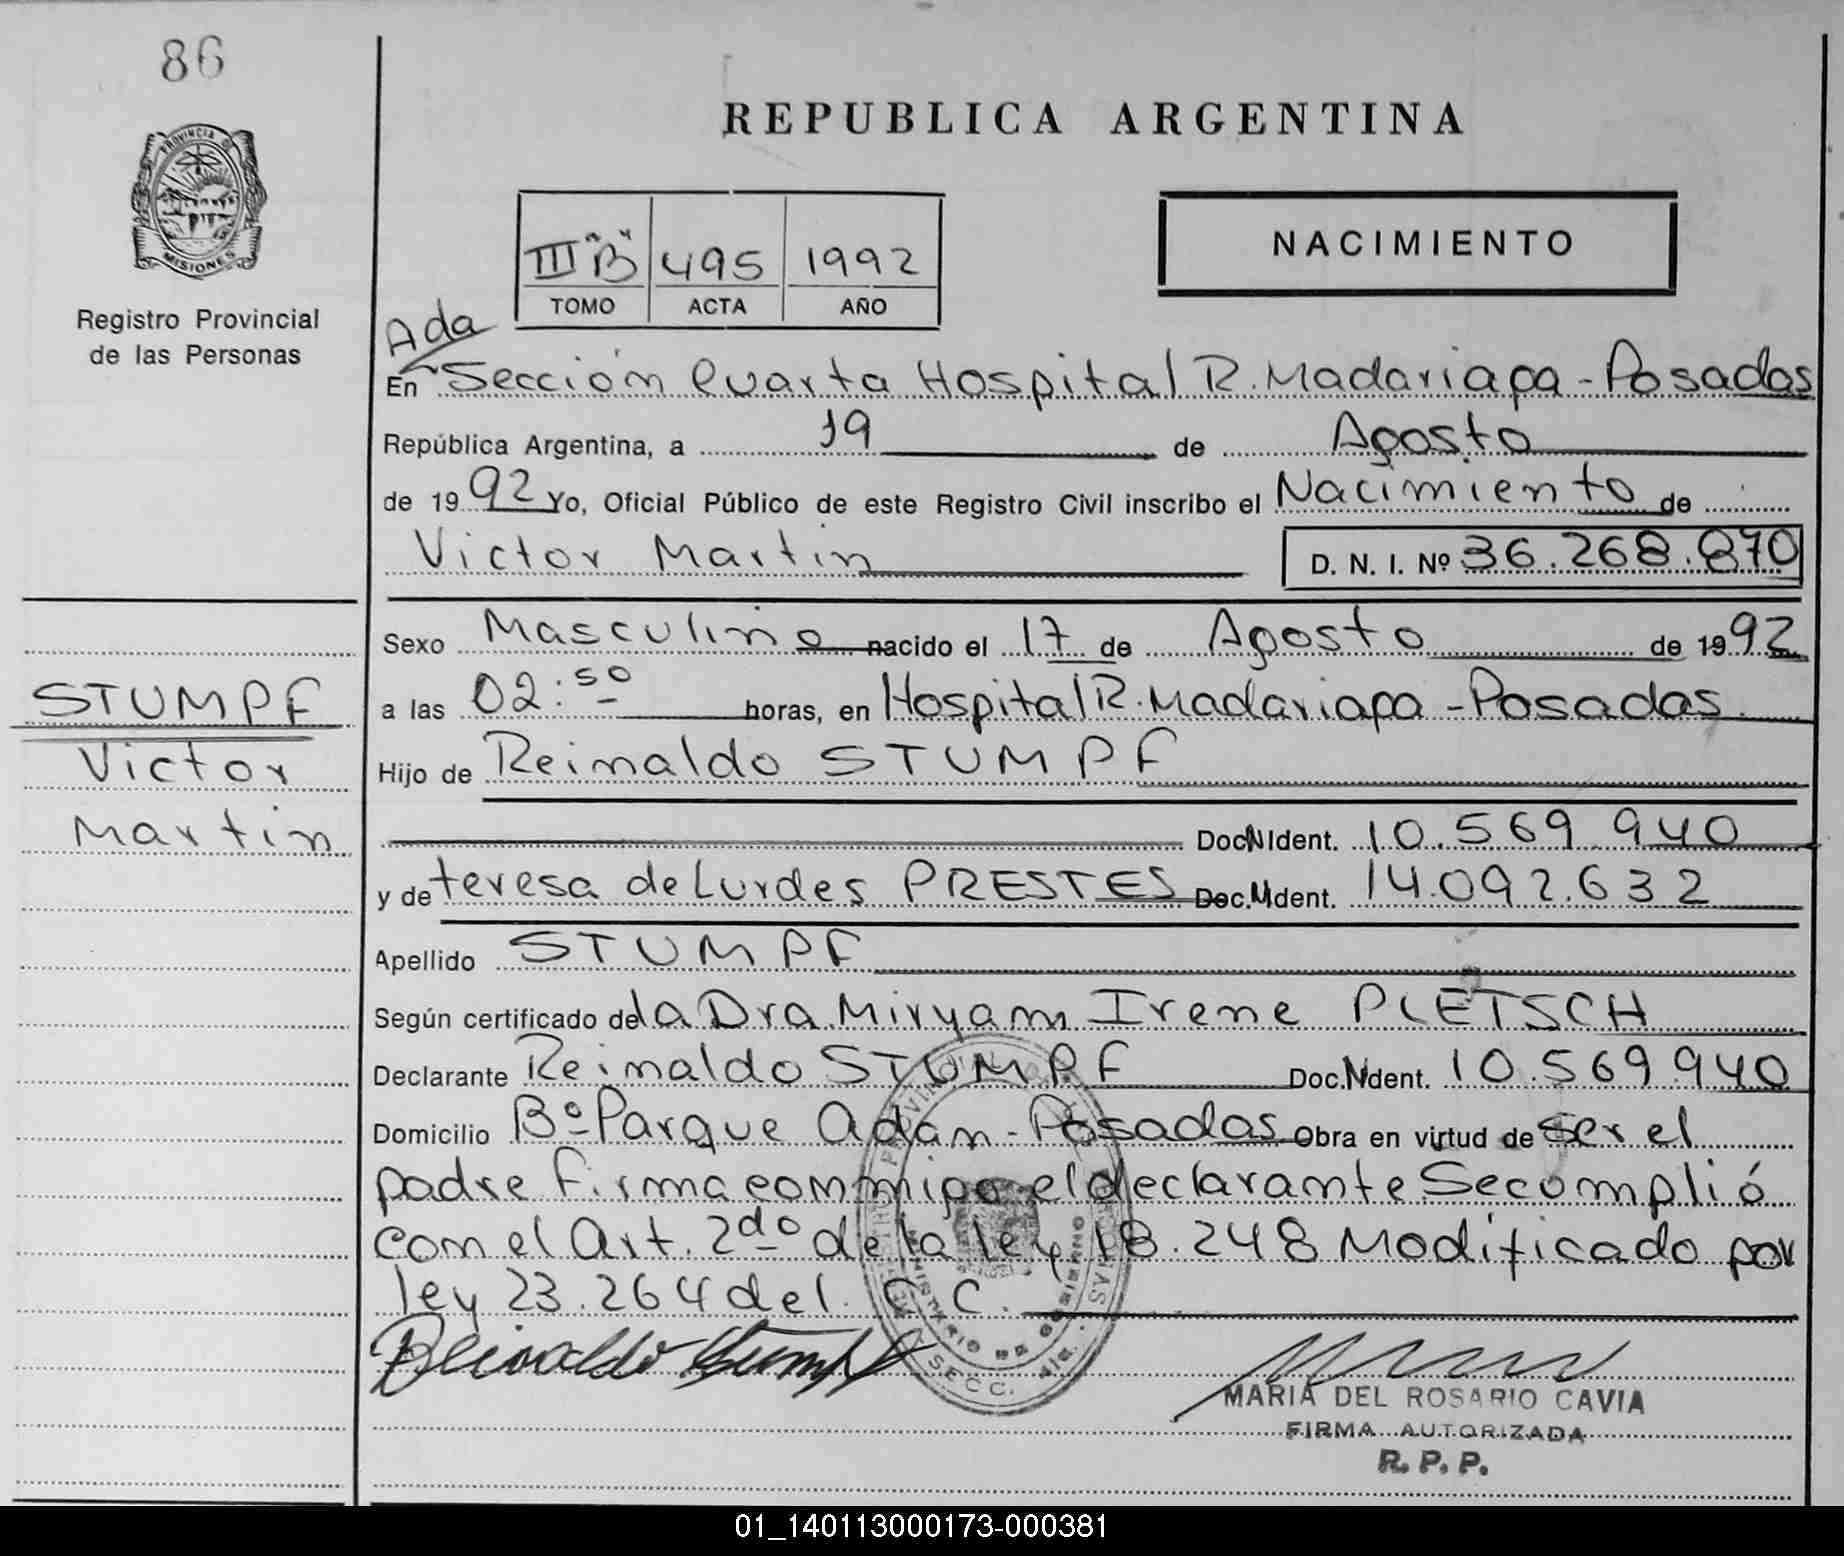 86
REPUBLICA ARGENTINA
PROVINCIA DE
MISIONES
Registro Provincial
de las Personas
III "B" 495 1992
TOMO ACTA AÑO
NACIMIENTO
Ada
En Sección Cuarta Hospital R. Madariaga - Posadas
República Argentina, a 19 de Agosto
de 1992 Yo, Oficial Público de este Registro Civil inscribo el Nacimiento de
Victor Martin D. N. I. Nº 36.268.870
Sexo Masculino nacido el 17 de Agosto de 1992
a las 02:50 horas, en Hospital R. Madariaga - Posadas
Hijo de Reinaldo STUMPF
Doc.N.Ident. 10.569.940
y de teresa de Lurdes PRESTES Doc.N.Ident. 14.092.632
Apellido STUMPF
Según certificado de la Dra. Miryam Irene PLETSCH
Declarante Reinaldo STUMPF Doc.N.Ident. 10.569.940
Domicilio Bº Parque Adam - Posadas Obra en virtud de ser el
padre firma conmigo el declarante Se cumplió
con el Art. 2do de la ley 18.248 Modificado por
ley 23.264 del C. C.
STUMPF
Victor
Martin
Reinaldo Stumpf
SECC. 4ta.
MARIA DEL ROSARIO CAVIA
FIRMA AUTORIZADA
R. P. P.
01_140113000173-000381